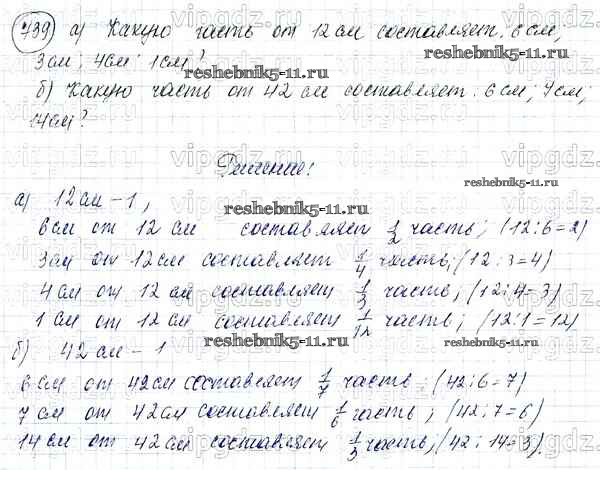 739) а) Какую часть от 12 см составляет: 6 см,
3 см; 4 см; 1 см?
reshebnik5-11.ru
б) Какую часть от 42 см составляет: 6 см, 7 см;
14 см?
Решение:
reshebnik5-11.ru
а) 12 см – 1,
reshebnik5-11.ru
6 см от 12 см составляет 1/2 часть; (12:6=2)
3 см от 12 см составляет 1/4 часть; (12:3=4)
4 см от 12 см составляет 1/3 часть; (12:4=3)
1 см от 12 см составляет 1/12 часть; (12:1=12)
б) 42 см – 1
reshebnik5-11.ru
reshebnik5-11.ru
6 см от 42 см составляет 1/7 часть; (42:6=7)
7 см от 42 см составляет 1/6 часть; (42:7=6)
14 см от 42 см составляет 1/3 часть; (42:14=3).